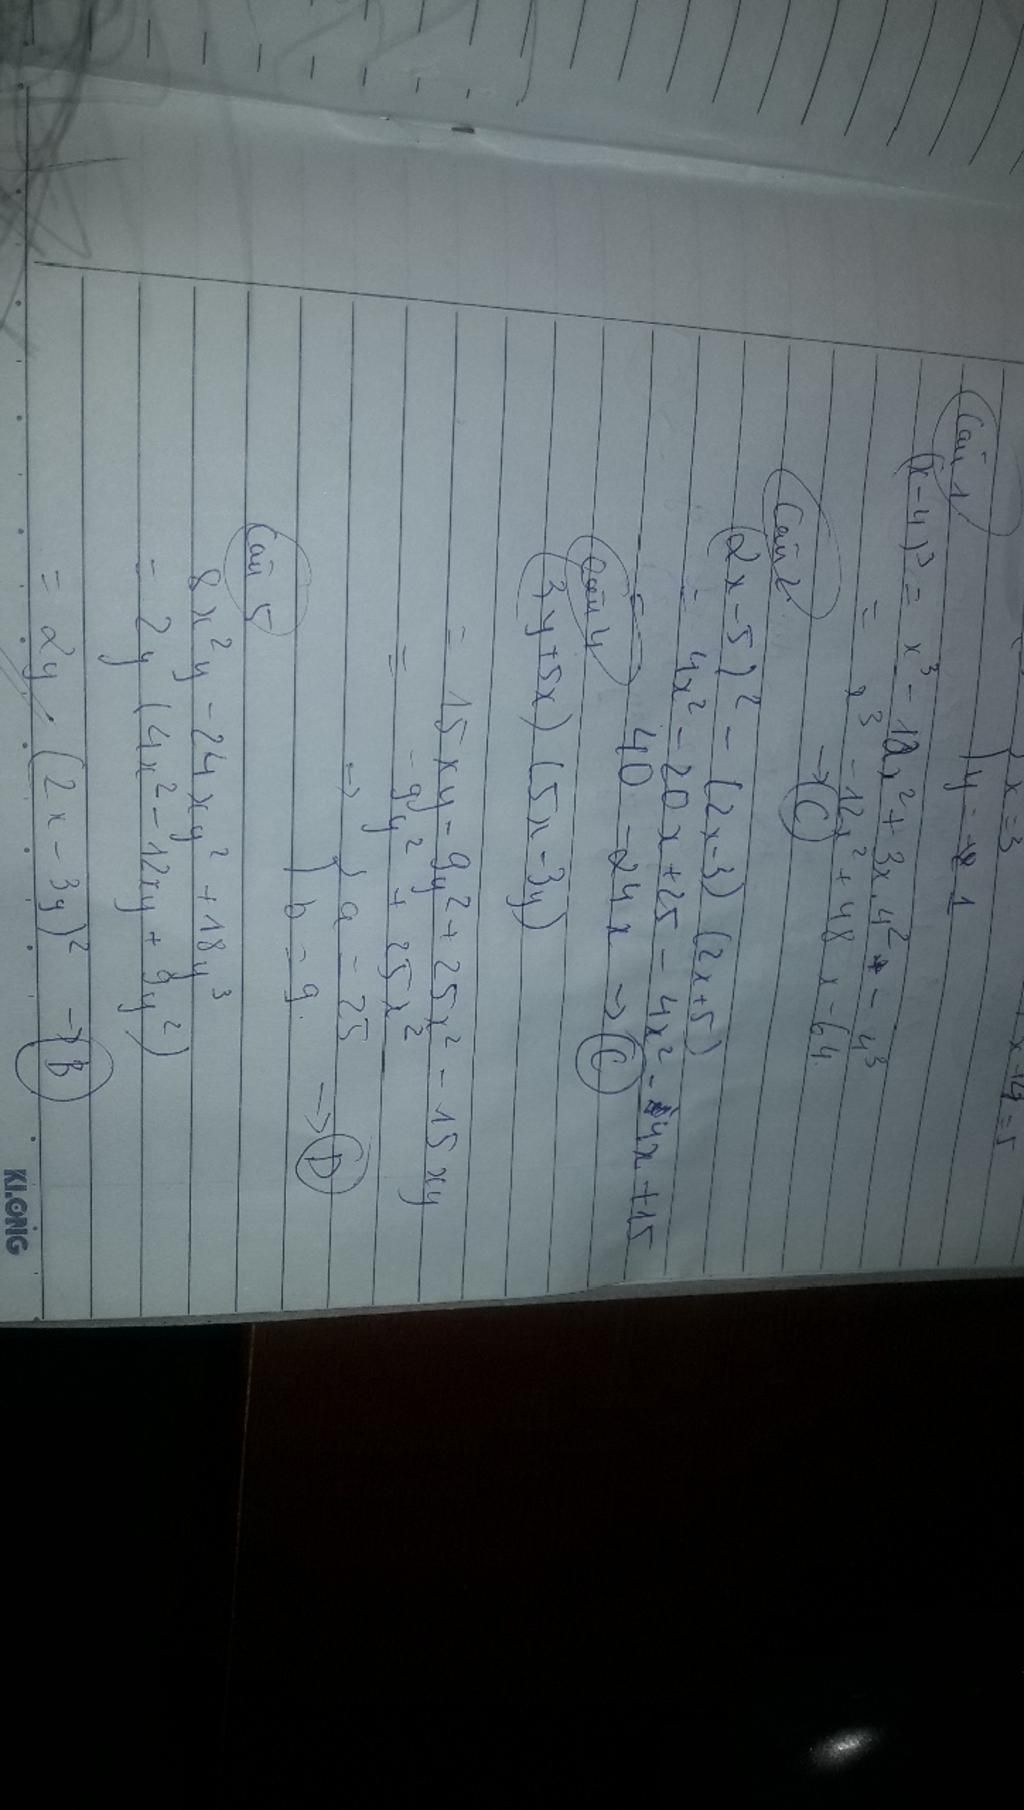 x = 3
y = 1
Câu 1
(x-4)³ = x³ - 12x² + 3x.4² - 4³
= x³ - 12x² + 48x - 64
→ C
Câu 2
(2x-5)² - (2x-3)(2x+5)
= 4x² - 20x + 25 - 4x² - 4x + 15
= 40 - 24x → C
Câu 4
(3y+5x)(5x-3y)
= 15xy - 9y² + 25x² - 15xy
= -9y² + 25x²
→ { a = 25
{ b = 9 → D
Câu 5
8x²y - 24xy² + 18y³
= 2y (4x² - 12xy + 9y²)
= 2y . (2x - 3y)² → B
KLONG